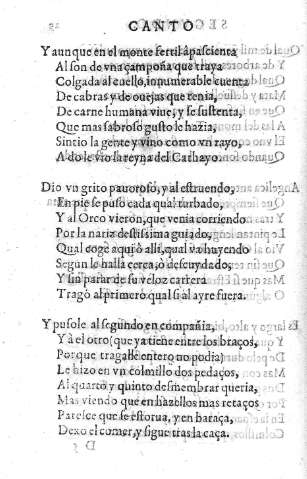 CANTO
Y aunque en el monte fertil apascienta
Al son de vna çampoña que traya
Colgada al cuello, innumerable cuenta
De cabras y de ouejas que tenia,
De carne humana viue, y se sustenta,
Que mas sabroso gusto le hazia,
Sintio la gente y vino como vn rayo,
A do le vio la reyna del Cathayo.
Dio vn grito pauoroso, y al estruendo,
En pie se puso cada qual turbado,
Y al Orco vieron, que venia corriendo
Por la nariz destissima guiado,
Qual coge aqui o alli, qual va huyendo
Segun le halla cerca, ò descuydado,
Y sin parar de su veloz carrera
Tragò al primero qual si al ayre fuera.
Y pusole al segundo en compañia,
Y à el otro (que ya tiene entre los braços,
Porque tragalle entero no podia)
Le hizo en vn colmillo dos pedaços,
Al quarto y quinto desmembrar queria,
Mas viendo que en hazellos mas retaços
Paresce que se estorua, y en baraça,
Dexo el comer, y sigue tras la caça.